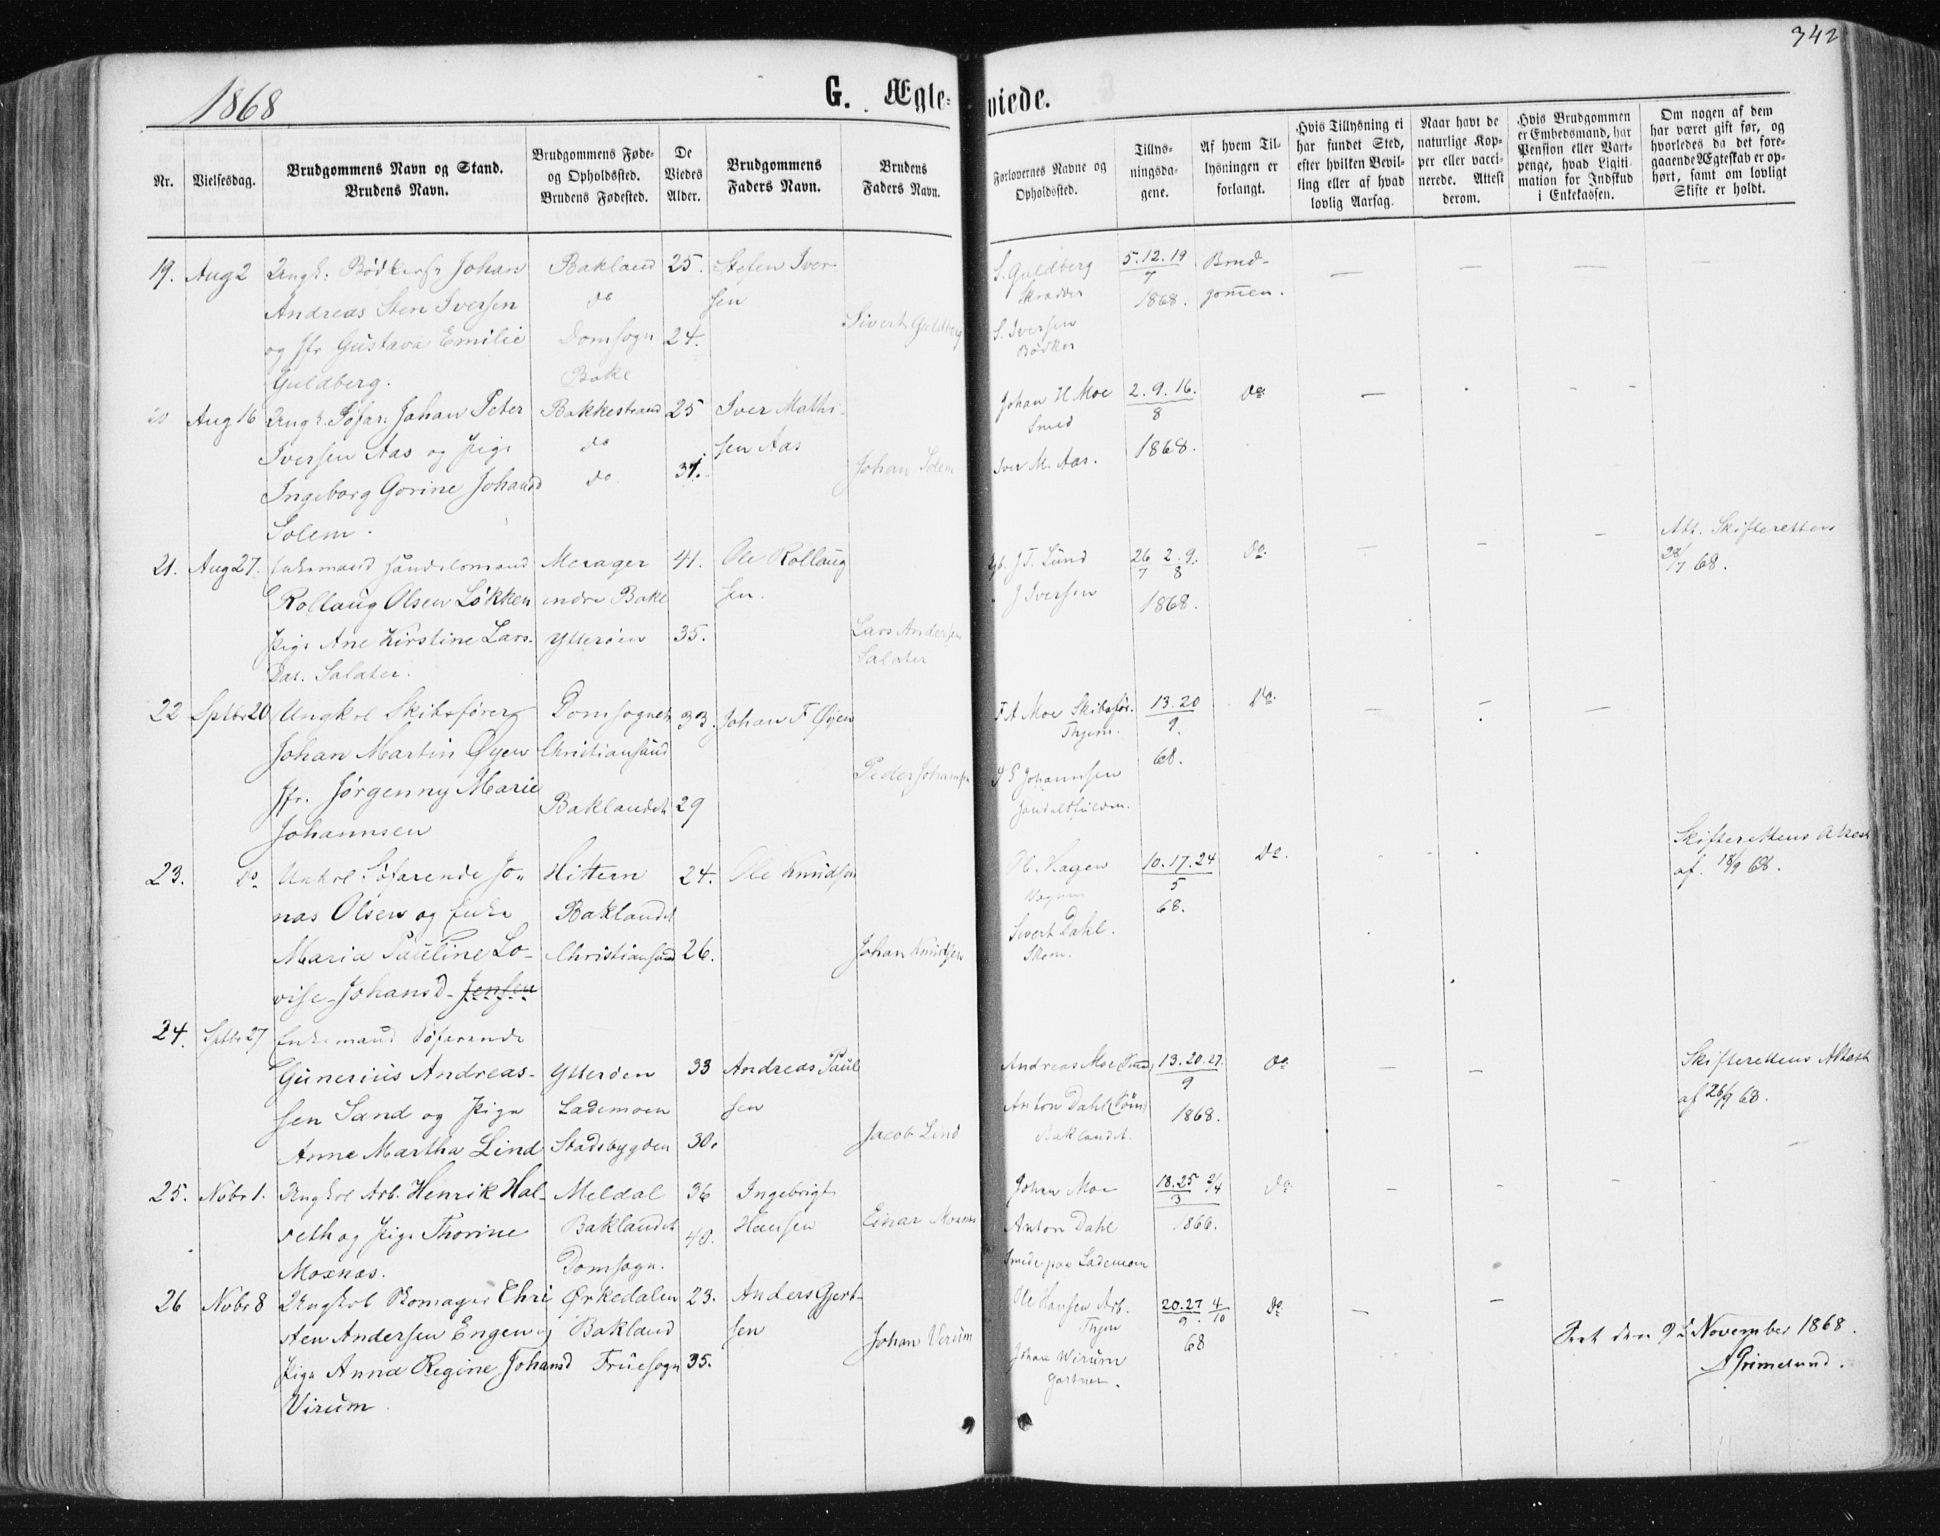 342
1868
G. Ægte-
viede.
Nr.
Vielsesdag.
Brudgommens Navn og Stand.
Brudens Navn.
Brudgommens Føde-
og Opholdssted.
Brudens Fødested.
De
Viedes
Alder.
Brudgommens
Faders Navn.
Brudens
Faders Navn.
Forlovernes Navne og
Opholdssted.
Tillys-
ningsda-
gene.
Af hvem Til-
lysningen er
forlangt.
Hvis Tillysning ei
har fundet Sted,
efter hvilken Bevil-
ling eller af hvad
lovlig Aarsag.
Naar havt de
naturlige Kop-
per eller vacci-
nerede. Attest
derom.
Hvis Brudgommen
er Embedsmand, har
Pension eller Vart-
penge, hvad Ligiti-
mation for Indskud
i Enkekassen.
Om nogen af dem
har været gift før, og
hvorledes da det fore-
gaaende Ægteskab er op-
hørt, samt om lovligt
Skifte er holdt.
19. Aug 2 Ungk: Johan Bakland 25. Stefen Iver- S. Guldberg 5. 12. 19 Brud- — — — —
Andreas Sten Iversen do sen Skrædder 7 gomen.
og Jfr Gustava Emilie Domsogn 24. Sivert Guldberg S. Iversen 1868.
Guldberg. Bakl Bødker
20 Aug 16 Ungk. Søfar: Johan Peter Bakkestrand 25 Iver Mathi- Johan H Moe 2. 9. 16. Do — — —
Iversen Aas og Pige do sen Aas Smed 8
Ingeborg Gorine Johansd do. 31. Johan Solem Iver M. Aas. 1868.
Solem.
21. Aug 27. Enkemand Handelsmand Merager 41. Ole Rollaug J. T. Lund 26 2. 9. Do. — — — Att. Skifterettens
Rollaug Olsen Løkken indre Bakl sen. J Iversen 7 8 28/7 68.
Pige Ane Kirstine Lars- Ytterøen 35. Lars Andersen 1868.
Dat. Salater. Salater
22 Sptbr 20 Ungkrl Skibsfører Domsognet 33. Johan F Øyen F A Moe Skibsfør. 13. 20 Do. — — —
Johan Martin Øyen Christiansund Thjem. 9.
Jfr. Jørgenny Marie Baklandet 29 Peder Johannsen P E Johannsen 68.
Johannsen
23. Do Unkrl Søfarende Jo- Hittern 24. Ole Knudsen Hagen 10. 17. 24 Do. Skifterettens Attest
nas Olsen og Enke Baklandet 5 af. 18/9 68.
Maria Pauline Lo- Christiansund 26. Johan Knudsen Sivert Dahl. 68.
vise Johansd. Jensen Skom.
24. Sptbr 27 Enkemand Søfarende
Gunerius Andreas- Ytterøen 33 Andreas Paul Andreas Moe (Smed) 13. 20. 27. Do — — Skifterettens Attest
sen Sand og Pige Lademoen sen Anton Dahl 9 af 26/9 68.
Anne Martha Lind Stadsbygden 30. Jacob Lind Baklandet. 1868.
25. Nvbr 1. Ungkrl Arb. Henrik Hal- Meldal 36 Ingebrigt Johan Moe 18. 25 2/4 Do — — — —
seth og Pige Thorine Baklandet 40. Hansen Einar Moxnes Anton Dahl 3
Moxnæs. Domsogn. Smede paa Lademoen 1866.
26 Nvbr 8 Ungkrl Romager Chri Ørkedalen 23. Anders Gjert- Ole Hansen Arb. 20. 27 4 Do — —
sten Andersen Engen og Bakland sen Thjem 9. 10
Pige Anna Regine Johansd Fruesogn 35. Johan Virum Johan Wirum 68
Virum. Gartner.
den 9d November 1868.
Grimelund.